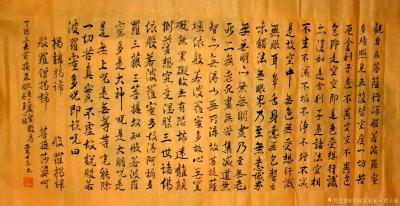 觀自在菩薩行深般若波羅蜜
多時照見五蘊皆空度一切苦
厄舍利子色不異空空不異色
色即是空空即是色受想行識
亦復如是舍利子是諸法空相
不生不滅不垢不淨不增不減
是故空中無色無受想行識
無眼耳鼻舌身意無色聲香
味觸法無眼界乃至無意識界
無無明亦無無明盡乃至無老
死亦無老死盡無苦集滅道無
智亦無得以無所得故菩提薩
埵依般若波羅蜜多故心無罣
礙無罣礙故無有恐怖遠離顛
倒夢想究竟涅槃三世諸佛
依般若波羅蜜多故得阿耨多
羅三藐三菩提故知般若波羅
蜜多是大神咒是大明咒
是無上咒是無等等咒能除
一切苦真實不虛故說般若
波羅蜜多咒即說咒曰
揭諦揭諦 般羅揭諦
般羅僧揭諦 菩提莎婆訶
丁酉